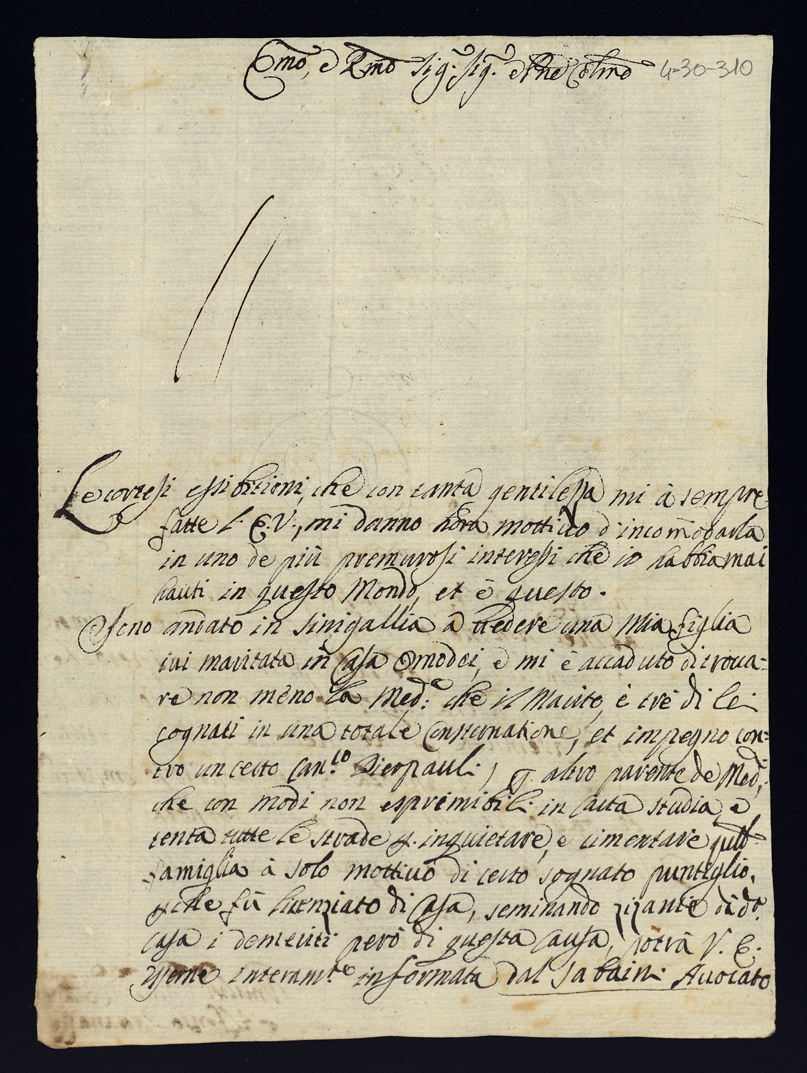 Emo, e Rmo Sig.r Sig.r e Pne Colmo 4-30-310
Le cortesi essibizioni, che con tanta gentilezza mi à sempre
fatte l'E.V., mi danno hora mottivo d'incom̃odarla
in uno de più premurosi interessi che io habbia mai
hauti in questo Mondo, et è questo.
Sono andato in Sinigallia à vedere una mia figlia
ivi maritata in Casa Omodei, e mi è accaduto di trova=
re non meno la Med.e che il Marito, e trè di lei
cognati in una totale Consternatione, et impegno con=
tro un certo Can.co Pierpauli, p. altro parente de Med.i
che con modi non esprimibili in carta studia, e
tenta tutte le strade p. inquietare, e cimentare
famiglia à solo mottivo di certo sognato puntiglio,
perche fù licenziato di Casa, seminando zizanie di d.a
Casa i demeriti però di questa Causa, potrà V. E.
esserne interam.te informata dal Sabaini Avvocato